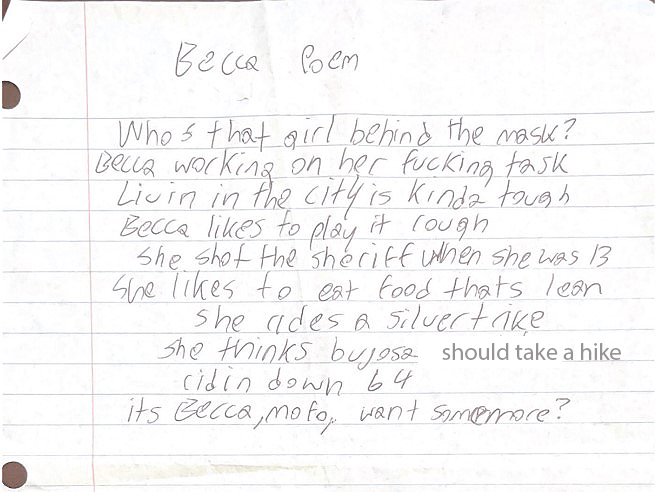 Becca Poem
Whos that girl behind the mask?
Becca working on her fucking task
Livin in the city is kinda tough
Becca likes to play it rough
she shot the sheriff when she was 13
she likes to eat food thats lean
she rides a silver trike
she thinks bujosa should take a hike
ridin down 64
its Becca, mofo, want somemore?